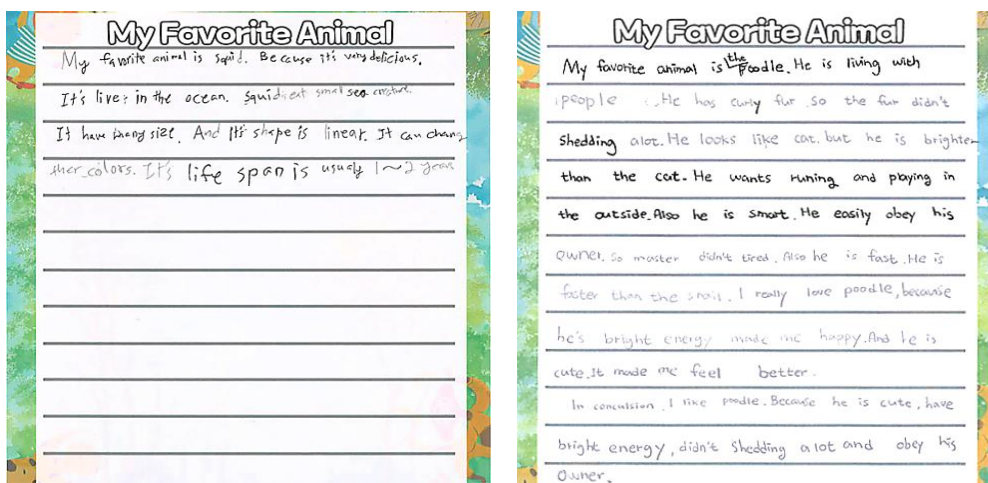 My Favorite Animal
My favorite animal is squid. Because it's very delicious.
It's lives in the ocean. Squid eat small sea creature.
It have many size. And It's shape is linear. It can change
ther colors. It's life span is usualy 1~2 years
My Favorite Animal
My favorite animal is the poodle. He is living with
people. He has curly fur. So the fur didn't
Shedding alot. He looks like cat. but he is brighter
than the cat. He wants runing and playing in
the outside. Also he is smart. He easily obey his
owner. So master didn't tired. Also he is fast. He is
faster than the snail. I really love poodle, because
he's bright energy made me happy. And he is
cute. It made me feel better.
In conculsion, I like poodle. Because he is cute, have
bright energy, didn't Shedding alot and obey his
owner.